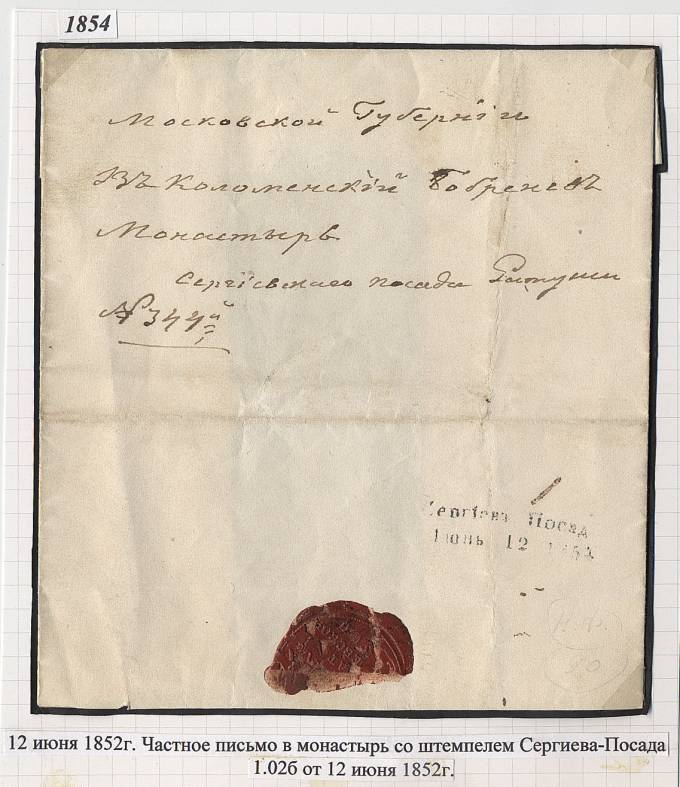 1854
Московской Губернiи
Въ Коломенскiй Бобреневъ
Монастырь
Сергiевскаго посада Ратуши
№ 344й
Сергiевъ Посад
Iюнь 12
12 июня 1852г. Частное письмо в монастырь со штемпелем Сергиева-Посада
1.02б от 12 июня 1852г.